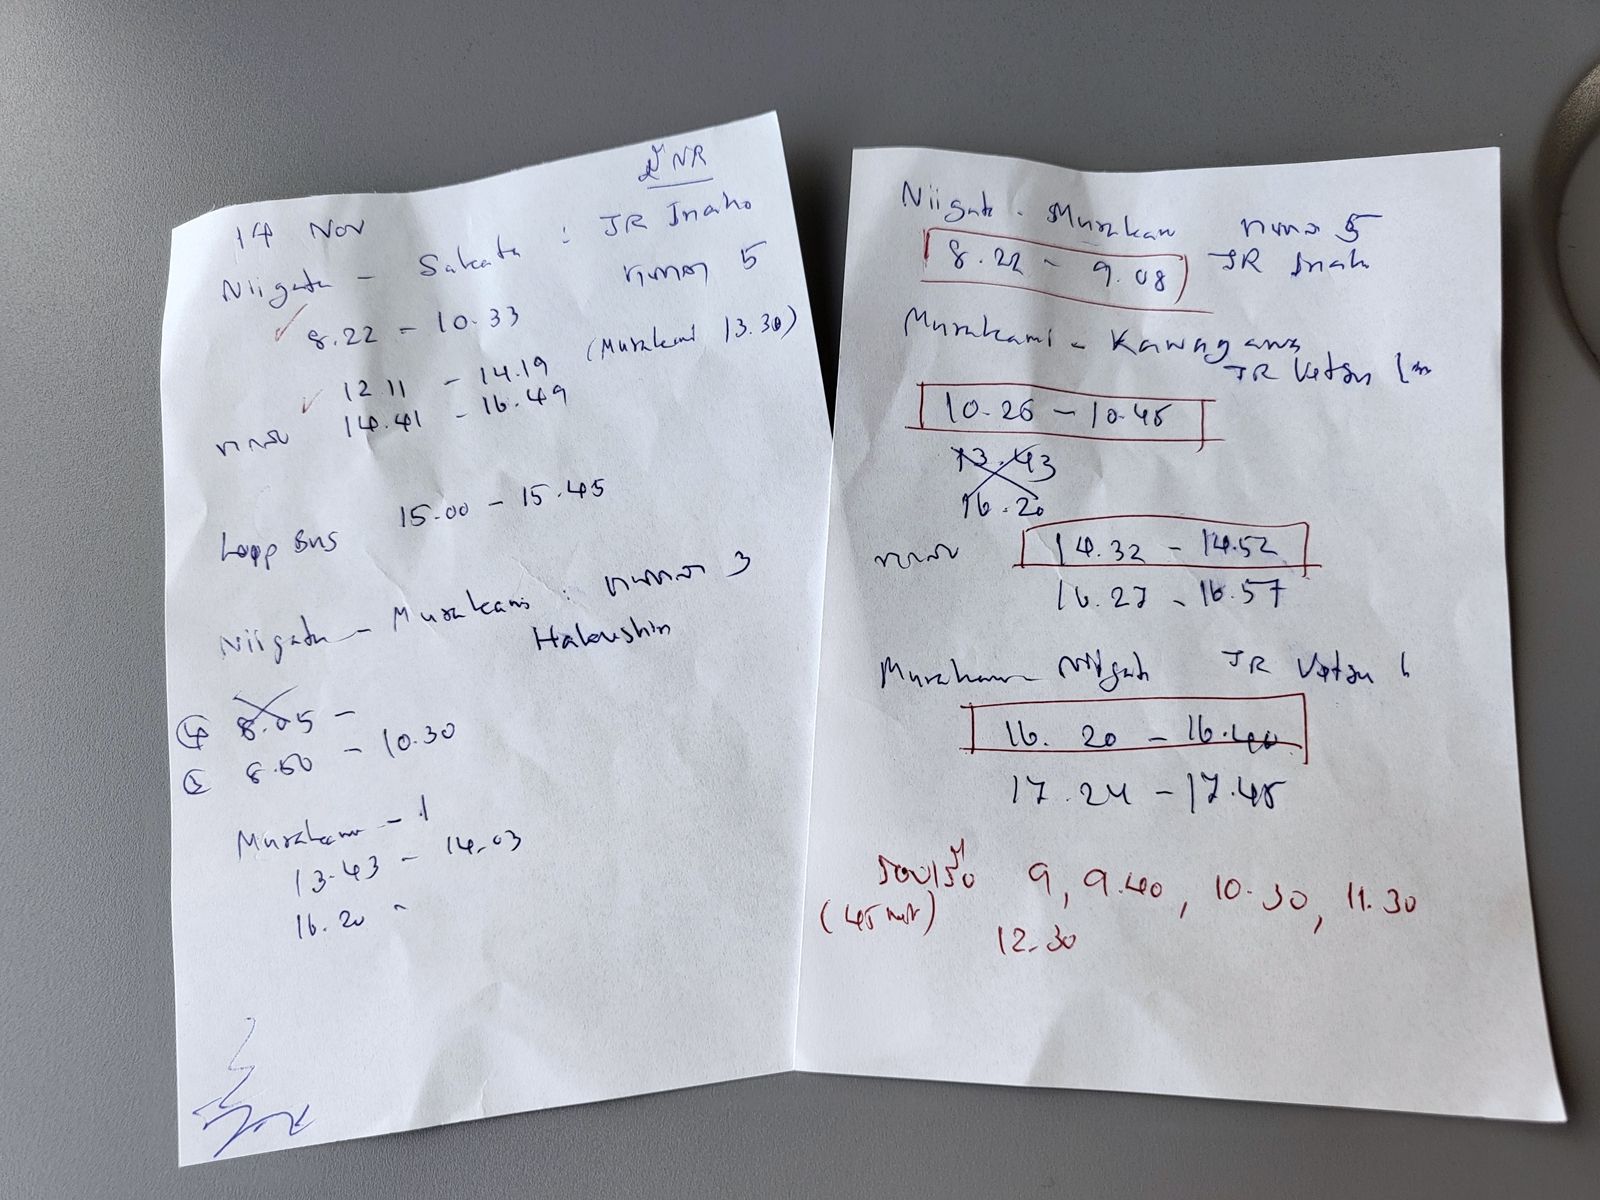 มี NR
14 Nov
Niigata - Sakata : JR Inaho
8.22 - 10.33 ชานชลา 5
12.11 - 14.19 (Murakami 13.30)
ขากลับ 14.41 - 16.49
Loop Bus 15.00 - 15.45
Niigata - Murakami : ชานชลา 3
Hakushin
4 8.05 -
8.50 - 10.30
Murakami -
13.43 - 14.03
16.20 -
Niigata - Murakami ชานชลา 5
8.22 - 9.08 JR Inaho
Murakami - Kawagawa
JR Uetsu
10.26 - 10.45
13.43
16.20
ขากลับ 14.32 - 14.52
16.27 - 16.57
Murakami - Niigata JR Uetsu
16.20 - 16.40
17.24 - 17.45
รอบเรือ 9, 9.40, 10.30, 11.30
(45 นาที) 12.30